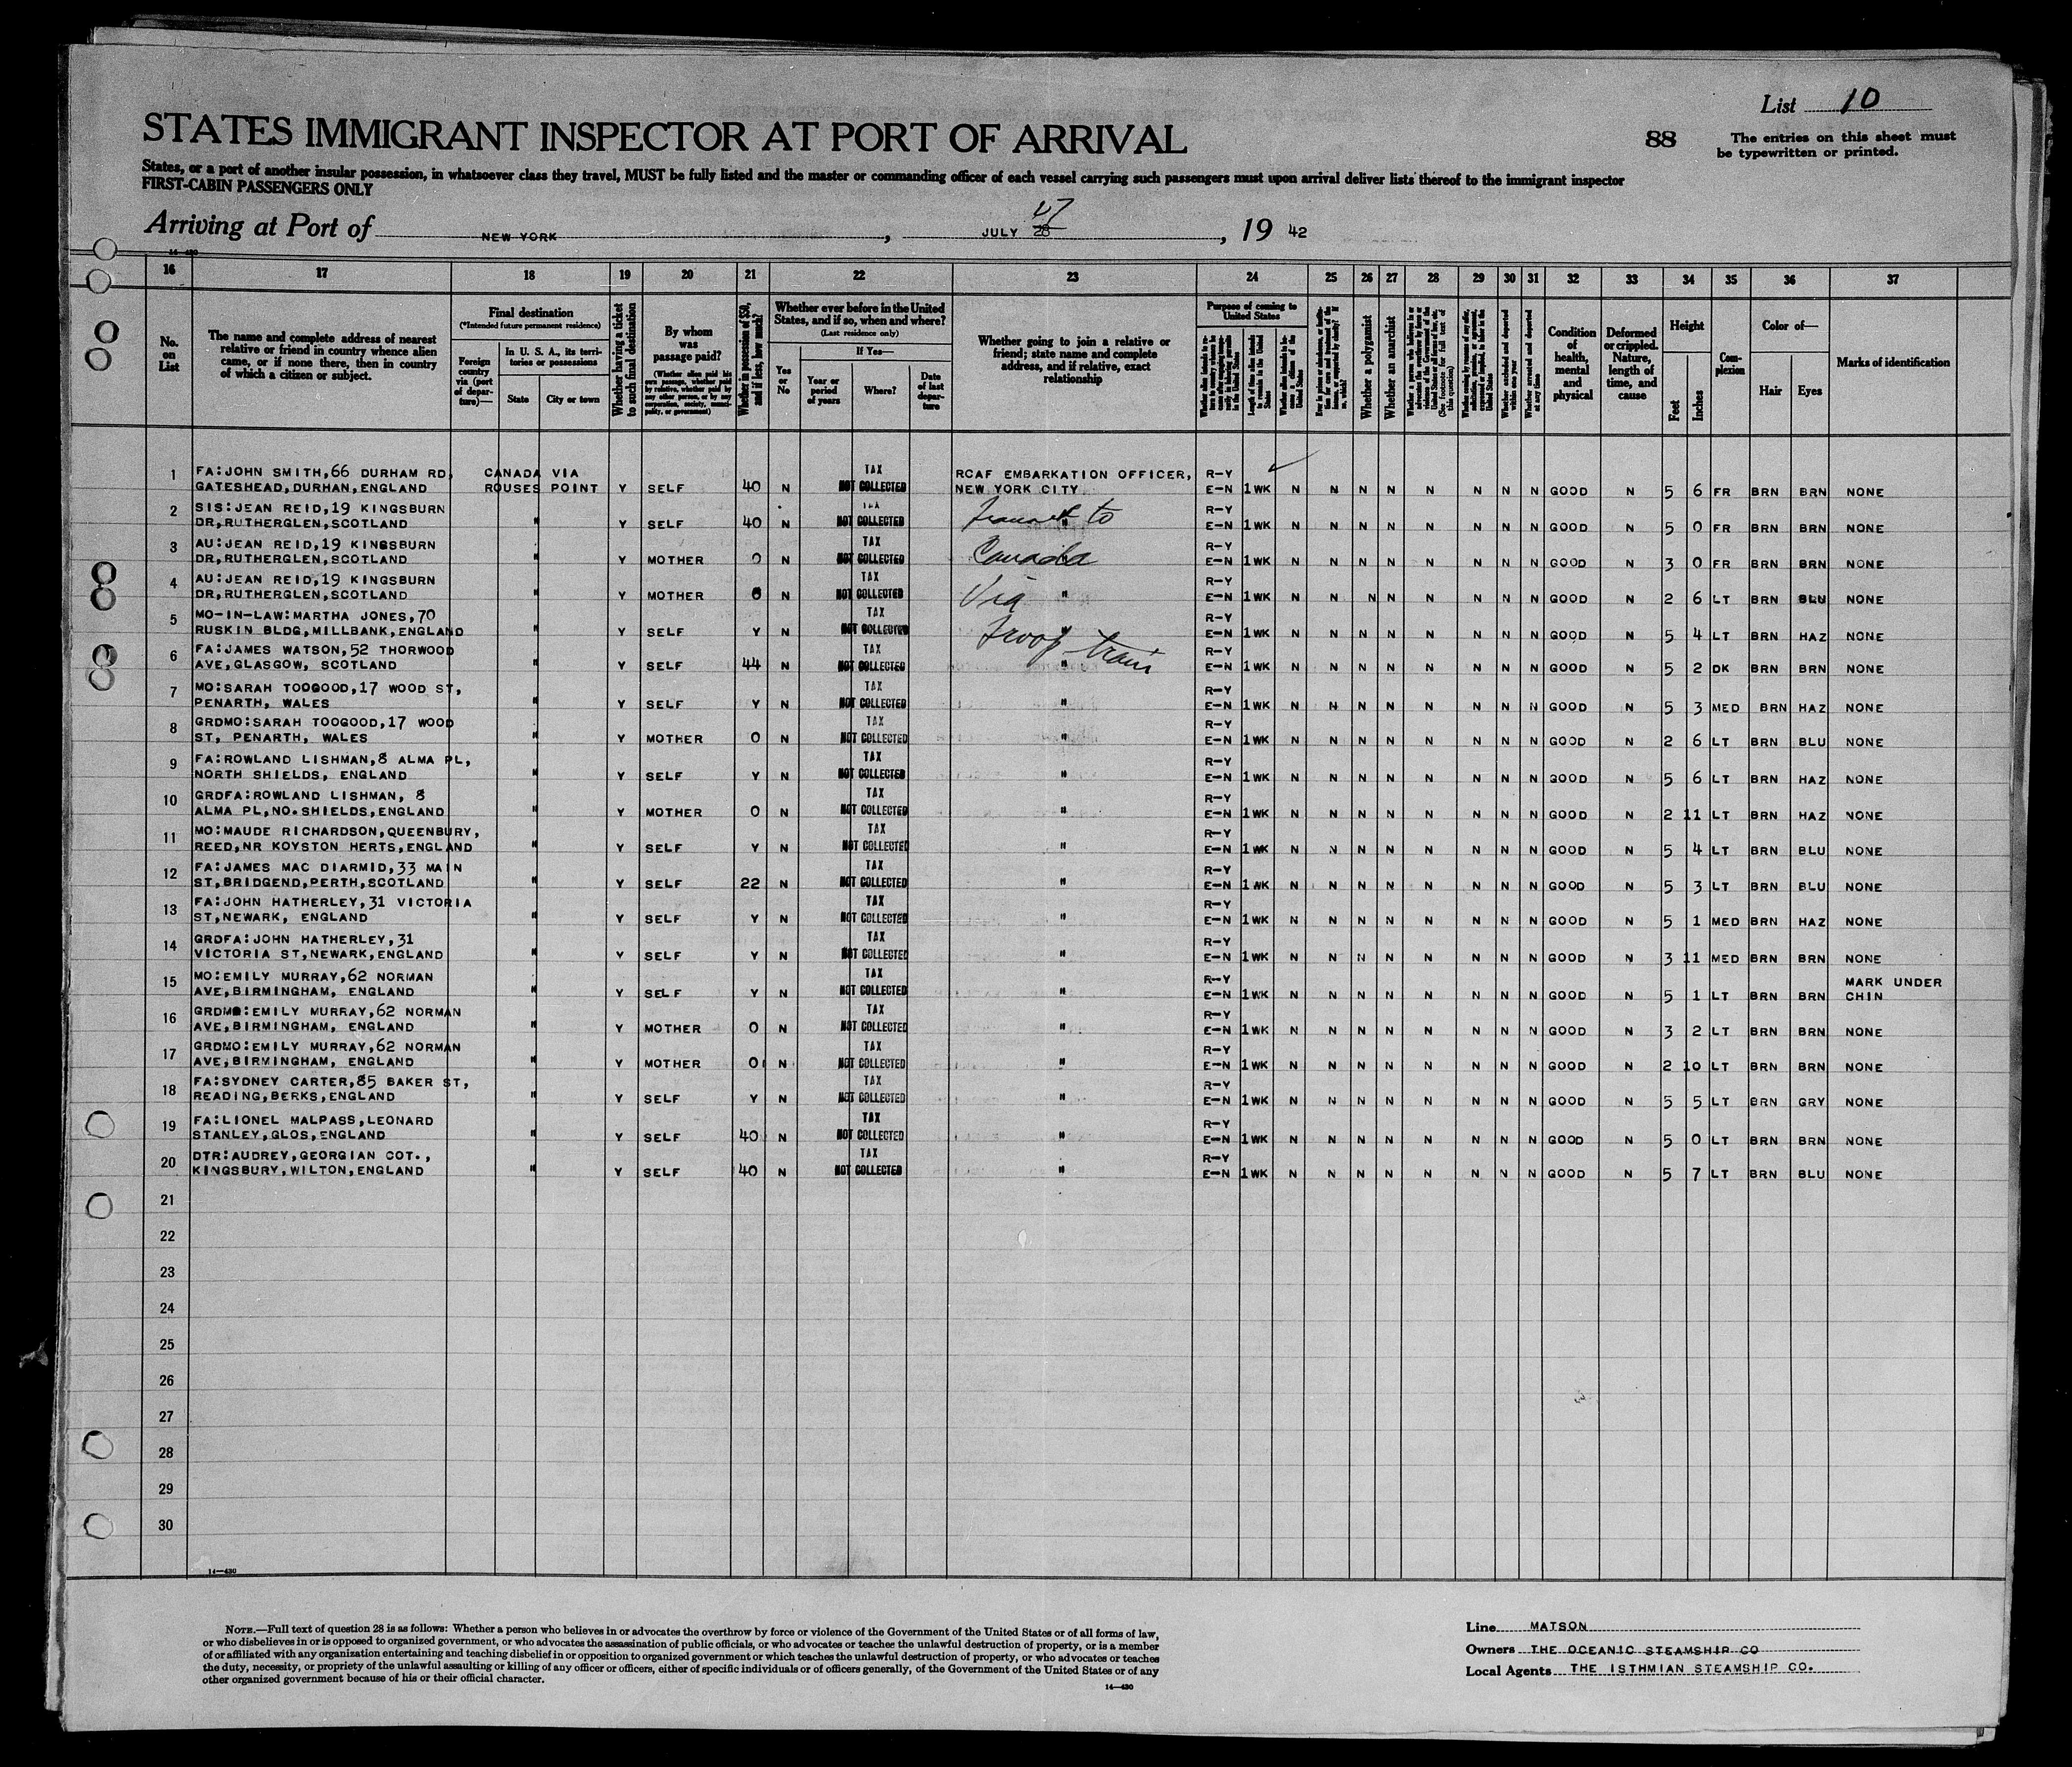 List 10
STATES IMMIGRANT INSPECTOR AT PORT OF ARRIVAL
88
The entries on this sheet must
be typewritten or printed.
States, or a port of another insular possession, in whatsoever class they travel, MUST be fully listed and the master or commanding officer of each vessel carrying such passengers must upon arrival deliver lists thereof to the immigrant inspector
FIRST-CABIN PASSENGERS ONLY
Arriving at Port of NEW YORK, JULY 28, 19 42
14-430
16 17 18 19 20 21 22 23 24 25 26 27 28 29 30 31 32 33 34 35 36 37
No. on List
The name and complete address of nearest relative or friend in country whence alien came, or if none there, then in country of which a citizen or subject.
Final destination
(*Intended future permanent residence)
Foreign country via (port of departure)—
In U. S. A., its territories or possessions
State
City or town
Whether having a ticket to such final destination
By whom was passage paid?
(Whether alien paid his own passage, whether paid by relative, whether paid by any other person, or by any corporation, society, municipality, or government)
Whether in possession of $50, and if less, how much?
Whether ever before in the United States, and if so, when and where?
(Last residence only)
Yes or No
If Yes—
Year or period of years
Where?
Date of last departure
Whether going to join a relative or friend; state name and complete address, and if relative, exact relationship
Purpose of coming to United States
Whether a polygamist
Whether an anarchist
Whether excluded and deported within one year
Whether arrested and deported at any time
Condition of health, mental and physical
Deformed or crippled. Nature, length of time, and cause
Height
Feet
Inches
Complexion
Color of—
Hair
Eyes
Marks of identification
1 FA:JOHN SMITH,66 DURHAM RD, CANADA VIA TAX RCAF EMBARKATION OFFICER, R-Y
GATESHEAD,DURHAN,ENGLAND ROUSES POINT Y SELF 40 N NOT COLLECTED NEW YORK CITY E-N 1WK N N N N N N N N GOOD N 5 6 FR BRN BRN NONE
2 SIS:JEAN REID,19 KINGSBURN TAX R-Y
DR,RUTHERGLEN,SCOTLAND " Y SELF 40 N NOT COLLECTED Transit to " E-N 1WK N N N N N N N N GOOD N 5 0 FR BRN BRN NONE
3 AU:JEAN REID,19 KINGSBURN TAX R-Y
DR,RUTHERGLEN,SCOTLAND " Y MOTHER 0 N NOT COLLECTED Canada " E-N 1WK N N N N N N N N GOOD N 3 0 FR BRN BRN NONE
4 AU:JEAN REID,19 KINGSBURN TAX R-Y
DR,RUTHERGLEN,SCOTLAND " Y MOTHER 0 N NOT COLLECTED Via " E-N 1WK N N N N N N N N GOOD N 2 6 LT BRN BLU NONE
5 MO-IN-LAW:MARTHA JONES,70 TAX R-Y
RUSKIN BLDG,MILLBANK,ENGLAND " Y SELF Y N NOT COLLECTED Troop train " E-N 1WK N N N N N N N N GOOD N 5 4 LT BRN HAZ NONE
6 FA:JAMES WATSON,52 THORWOOD TAX R-Y
AVE,GLASGOW, SCOTLAND " Y SELF 44 N NOT COLLECTED " E-N 1WK N N N N N N N N GOOD N 5 2 DK BRN BRN NONE
7 MO:SARAH TOOGOOD,17 WOOD ST, TAX R-Y
PENARTH, WALES " Y SELF Y N NOT COLLECTED " E-N 1WK N N N N N N N N GOOD N 5 3 MED BRN HAZ NONE
8 GRDMO:SARAH TOOGOOD,17 WOOD TAX R-Y
ST, PENARTH, WALES " Y MOTHER 0 N NOT COLLECTED " E-N 1WK N N N N N N N N GOOD N 2 6 LT BRN BLU NONE
9 FA:ROWLAND LISHMAN,8 ALMA PL, TAX R-Y
NORTH SHIELDS, ENGLAND " Y SELF Y N NOT COLLECTED " E-N 1WK N N N N N N N N GOOD N 5 6 LT BRN HAZ NONE
10 GRDFA:ROWLAND LISHMAN, 8 TAX R-Y
ALMA PL,NO.SHIELDS,ENGLAND " Y MOTHER 0 N NOT COLLECTED " E-N 1WK N N N N N N N N GOOD N 2 11 LT BRN HAZ NONE
11 MO:MAUDE RICHARDSON,QUEENBURY, TAX R-Y
REED,NR KOYSTON HERTS,ENGLAND " Y SELF Y N NOT COLLECTED " E-N 1WK N N N N N N N N GOOD N 5 4 LT BRN BLU NONE
12 FA:JAMES MAC DIARMID,33 MAIN TAX R-Y
ST,BRIDGEND,PERTH,SCOTLAND " Y SELF 22 N NOT COLLECTED " E-N 1WK N N N N N N N N GOOD N 5 3 LT BRN BLU NONE
13 FA:JOHN HATHERLEY,31 VICTORIA TAX R-Y
ST,NEWARK, ENGLAND " Y SELF Y N NOT COLLECTED " E-N 1WK N N N N N N N N GOOD N 5 1 MED BRN HAZ NONE
14 GRDFA:JOHN HATHERLEY,31 TAX R-Y
VICTORIA ST,NEWARK,ENGLAND " Y SELF Y N NOT COLLECTED " E-N 1WK N N N N N N N N GOOD N 3 11 MED BRN BRN NONE
15 MO:EMILY MURRAY,62 NORMAN TAX R-Y MARK UNDER
AVE,BIRMINGHAM, ENGLAND " Y SELF Y N NOT COLLECTED " E-N 1WK N N N N N N N N GOOD N 5 1 LT BRN BRN CHIN
16 GRDMO:EMILY MURRAY,62 NORMAN TAX R-Y
AVE,BIRMINGHAM, ENGLAND " Y MOTHER 0 N NOT COLLECTED " E-N 1WK N N N N N N N N GOOD N 3 2 LT BRN BRN NONE
17 GRDMO:EMILY MURRAY,62 NORMAN TAX R-Y
AVE,BIRMINGHAM, ENGLAND " Y MOTHER 0 N NOT COLLECTED " E-N 1WK N N N N N N N N GOOD N 2 10 LT BRN BRN NONE
18 FA:SYDNEY CARTER,85 BAKER ST, TAX R-Y
READING,BERKS,ENGLAND " Y SELF Y N NOT COLLECTED " E-N 1WK N N N N N N N N GOOD N 5 5 LT BRN GRY NONE
19 FA:LIONEL MALPASS,LEONARD TAX R-Y
STANLEY,GLOS,ENGLAND " Y SELF 40 N NOT COLLECTED " E-N 1WK N N N N N N N N GOOD N 5 0 LT BRN BRN NONE
20 DTR:AUDREY,GEORGIAN COT., TAX R-Y
KINGSBURY,WILTON,ENGLAND " Y SELF 40 N NOT COLLECTED " E-N 1WK N N N N N N N N GOOD N 5 7 LT BRN BLU NONE
21
22
23
24
25
26
27
28
29
30
14-430
NOTE.—Full text of question 28 is as follows: Whether a person who believes in or advocates the overthrow by force or violence of the Government of the United States or of all forms of law,
or who disbelieves in or is opposed to organized government, or who advocates the assassination of public officials, or who advocates or teaches the unlawful destruction of property, or is a member
of or affiliated with any organization entertaining and teaching disbelief in or opposition to organized government or which teaches the unlawful destruction of property, or who advocates or teaches
the duty, necessity, or propriety of the unlawful assaulting or killing of any officer or officers, either of specific individuals or of officers generally, of the Government of the United States or of any
other organized government because of his or their official character.
14-430
Line MATSON
Owners THE OCEANIC STEAMSHIP CO
Local Agents THE ISTHMIAN STEAMSHIP CO.